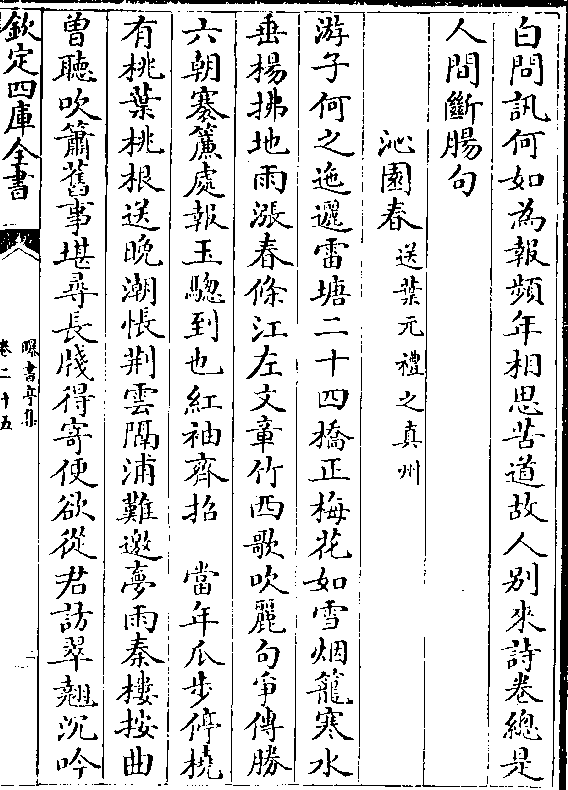 白問訊何如為報頻年相思苦道故人别來詩卷總是
人間斷腸句
沁園春 送葉元禮之真州
游子何之迤邐雷塘二十四橋正梅花如雪烟籠寒水
垂楊拂地雨漲春條江左文章竹西歌吹麗句争傳勝
六朝褰簾處報玉驄到也紅袖齊招 當年瓜步停橈
有桃葉桃根送晚潮悵荆雲隔浦難邀夢雨秦樓按曲
曽聽吹簫舊事堪尋長牋得寄便欲從君訪翠翹沉吟
欽定四庫全書
曝書亭集
卷二十五